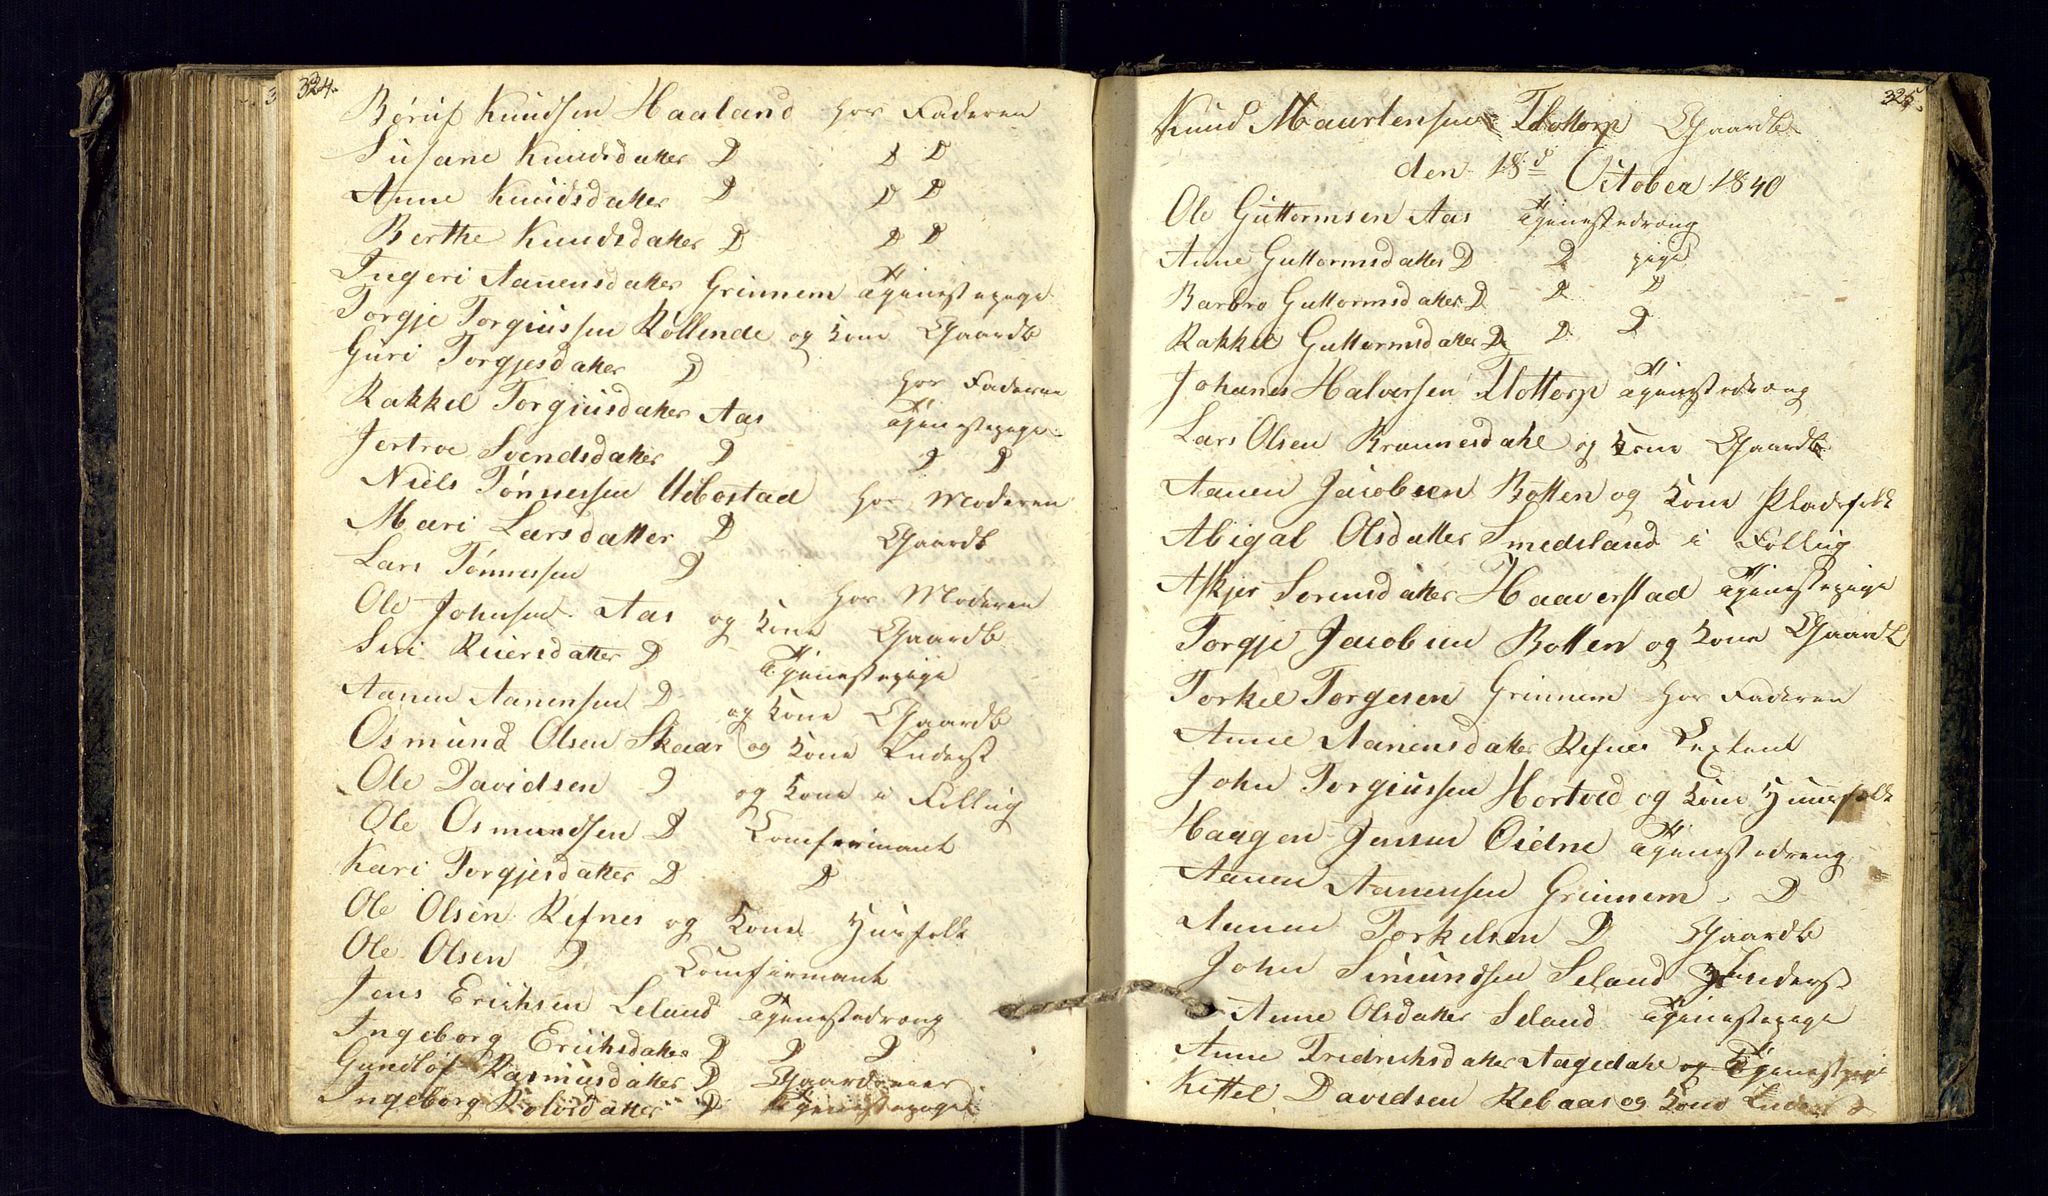 324.
Børuf Knudsen Haaland hos Faderen
Susane Knudsdatter D D D
Anne Knudsdatter D D D
Berthe Knudsdatter D D D
Ingeri Aanensdatter Grinnem Tjenestepige
Torgje Torgiussen Rollende og Kone Gaardb
Guri Torgjesdatter D hos Faderen
Rakkel Torgiusdatter Aas Tjenestepige
Jertroe Svendsdatter D D D
Niels Tønnessen Uebostad hos Moderen
Mari Larsdatter D Gaardb
Lars Tønnessen D hos Moderen
Ole Johnsen Aas og Kone Gaardb
Siri Reiersdatter D Tjenestepige
Aanen Aanensen D og Kone Gaardb
Osmund Olsen Skaar og Kone Inderst
Ole Davidsen D og Kone i Follug
Ole Osmundsen D Comfirmant
Kari Torgjesdatter D D
Ole Olsen Refnes og Kone Huusfolk
Ole Olsen D Comfirmant
Jens Erichsen Leland Tjenestedreng
Ingeborg Erichsdatter D D D
Gundlof Rasmusdatter D
Ingeborg Rolvsdatter D Tjenestepige
325.
Knud Maurtensen Tlottorp Gaardb
den 18d October 1840
Ole Guttormsen Aas Tjenestedreng
Anne Guttormsdatter D D pige
Barbro Guttormsdatter D D D
Rakkel Guttormsdatter D D D
Johanes Halversen Tlottorp Tjenestedreng
Lars Olsen Brounesdahl og Kone Gaardb
Aanen Jacobsen Botten og Kone Pladsfolk
Abigal Olsdatter Smedsland i Follug
Askjer Sorensdatter Haaverstad Tjenestepige
Torgje Jacobsen Botten og Kone Gaardb
Torkel Torgesen Grinnem hos Faderen
Anne Aanensdatter Refnes
John Torgiussen Hortved og Kone Huusfolk
Haagen Jensen Eidne Tjenestedreng
Aanen Aanensen Grinnem D
Aanen Torkelsen D Gaardb
John Simundsen Seland Inderst
Anne Olsdatter Seland Tjenestepige
Anne Fredrichsdatter Aagedahl og Tjenestepige
Kittel Davidsen Rebaas og Kone Inderst